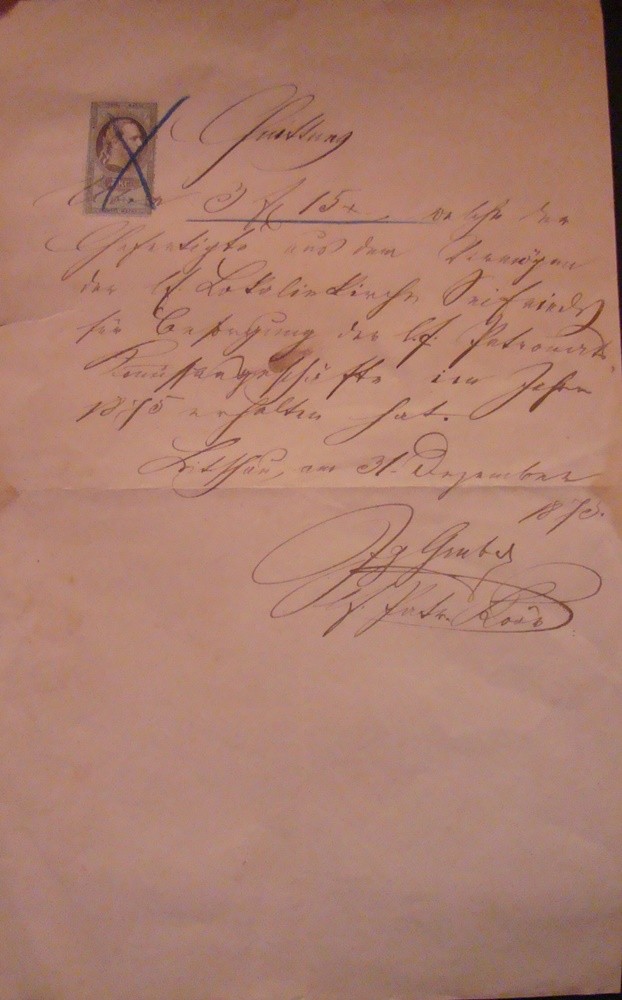 Quittung
3 fl 15 x welche der
Gefertigte aus dem Vermögen
der lf Lokaliekirche Seifrieds
für Besorgung der l.f. Patronats
geschäfte im Jahre
1875 erhalten hat.
Litschau, am 31. Dezember
1875.
Jg Gruber
lf. Patr. Koär